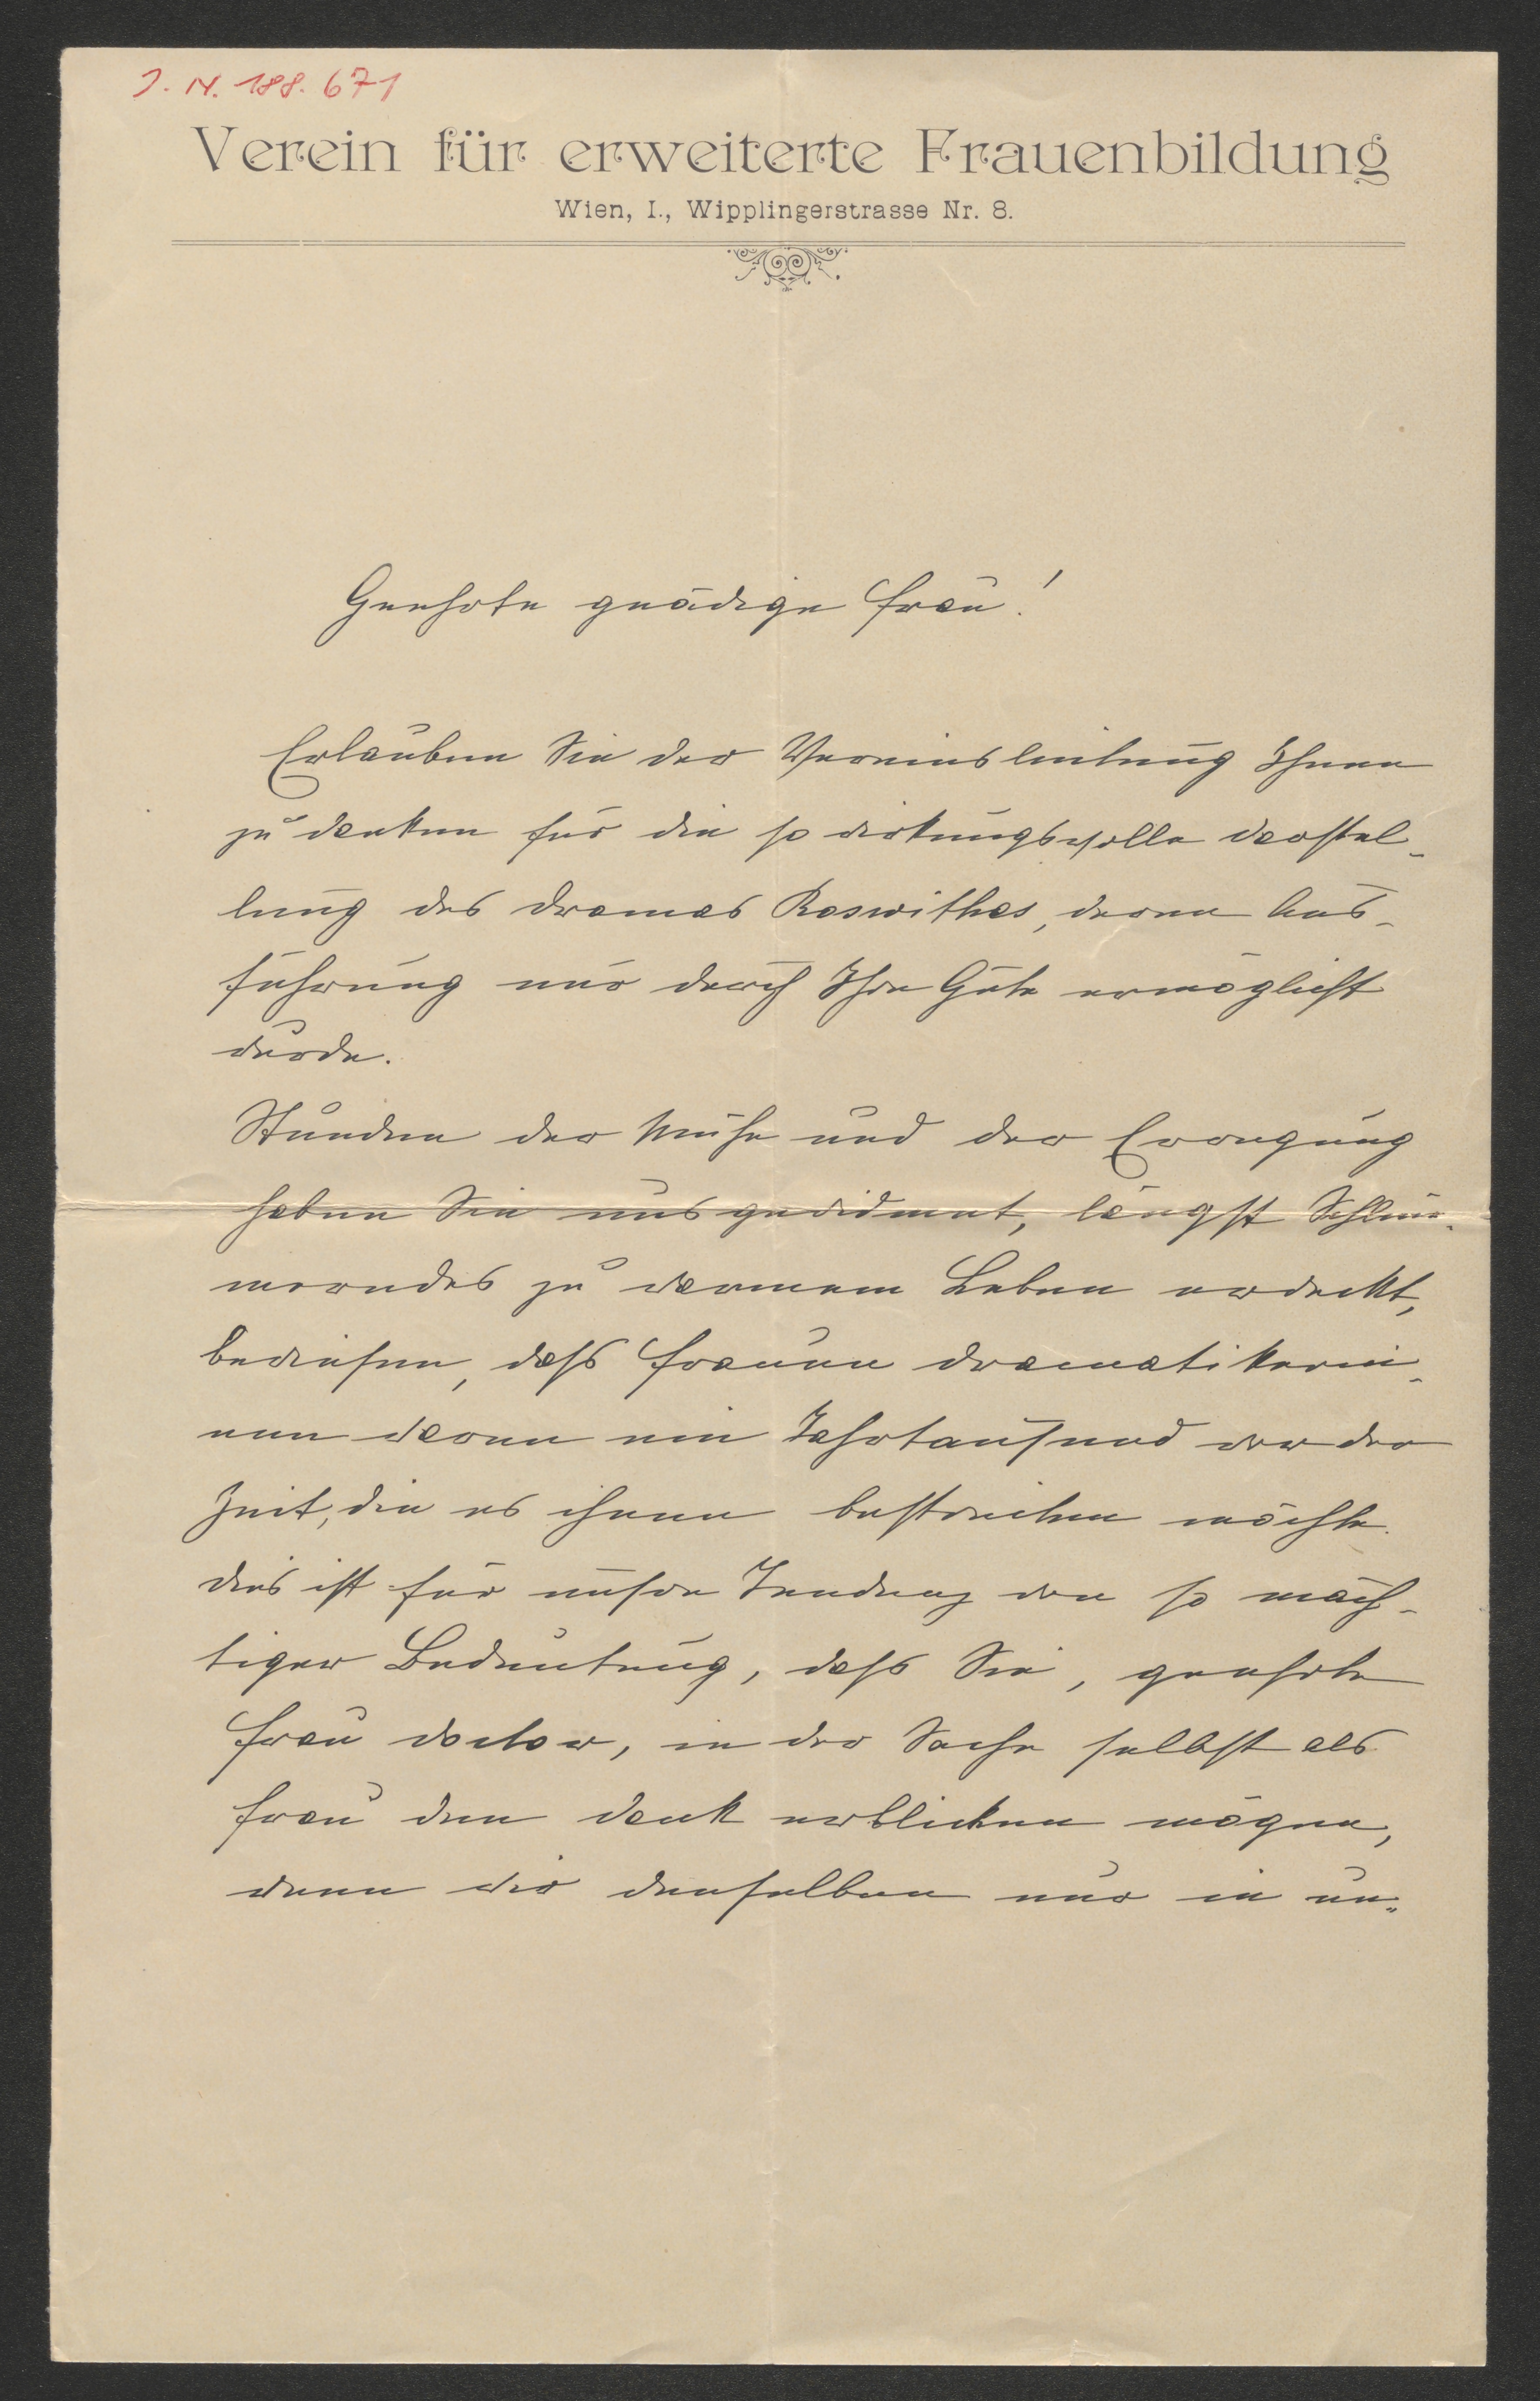 J. N. 188.671
Verein für erweiterte Frauenbildung
Wien, I., Wipplingerstrasse Nr. 8.
Geehrte gnädige Frau!
Erlauben Sie der Vereinsleitung Ihnen
zu danken für die so wirkungsvolle Darstel-
lung des Dramas Roswithas, deren Aus-
führung nur durch Ihre Güte ermöglicht
wurde.
Stunden der Mühe und der Erregung
haben Sie uns gewidmet, längst Schlum-
merndes zu warmem Leben erweckt,
bewiesen, dass Frauen Dramatikerin-
nen waren ein Jahrtausend vor der
Zeit, die es ihnen bestreiten möchte.
Dies ist für unsere Tendenz von so mäch-
tiger Bedeutung, dass Sie, geehrte
Frau Doctor, in der Sache selbst als
Frau den Dank erblicken mögen,
wenn wir denselben nur in un-